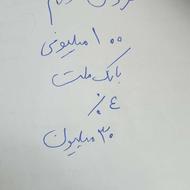 ۱۰۰ میلیونی
بانک ملت
٤ ٪
۳۰ میلیون